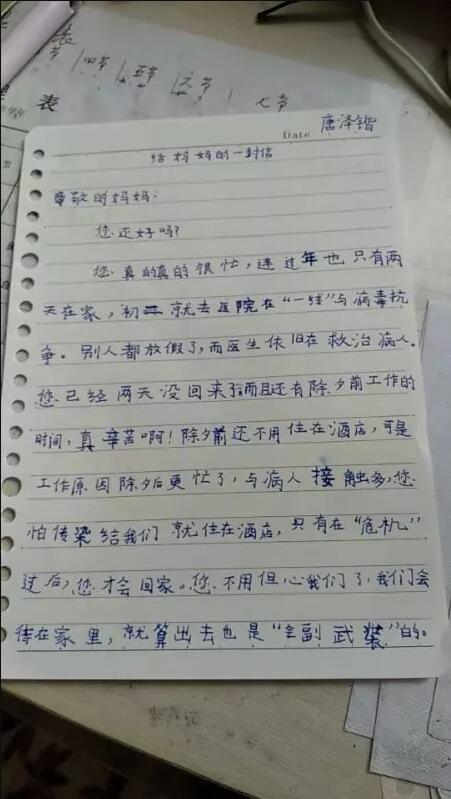 表
节 四节 五节 六节
表 七节
Date 唐泽锴
给妈妈的一封信
尊敬的妈妈:
您还好吗?
您真的真的很忙,连过年也只有两
天在家,初二就去医院在“一线”与病毒抗
争。别人都放假了,而医生依旧在救治病人。
您已经两天没回来了而且还有除夕前工作的
时间,真辛苦啊!除夕前还不用住在酒店,可是
工作原因除夕后更忙了,与病人接触多,您
怕传染给我们就住在酒店,只有在“危机”
过后,您才会回家。您不用但心我们了,我们会
待在家里,就算出去也是“全副武装”的。